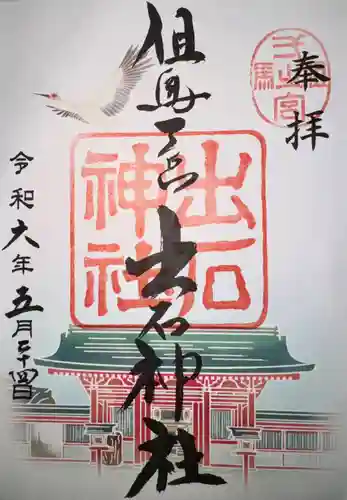 奉拝
但馬一宮出石神社
出石
神社
令和六年五月二十四日